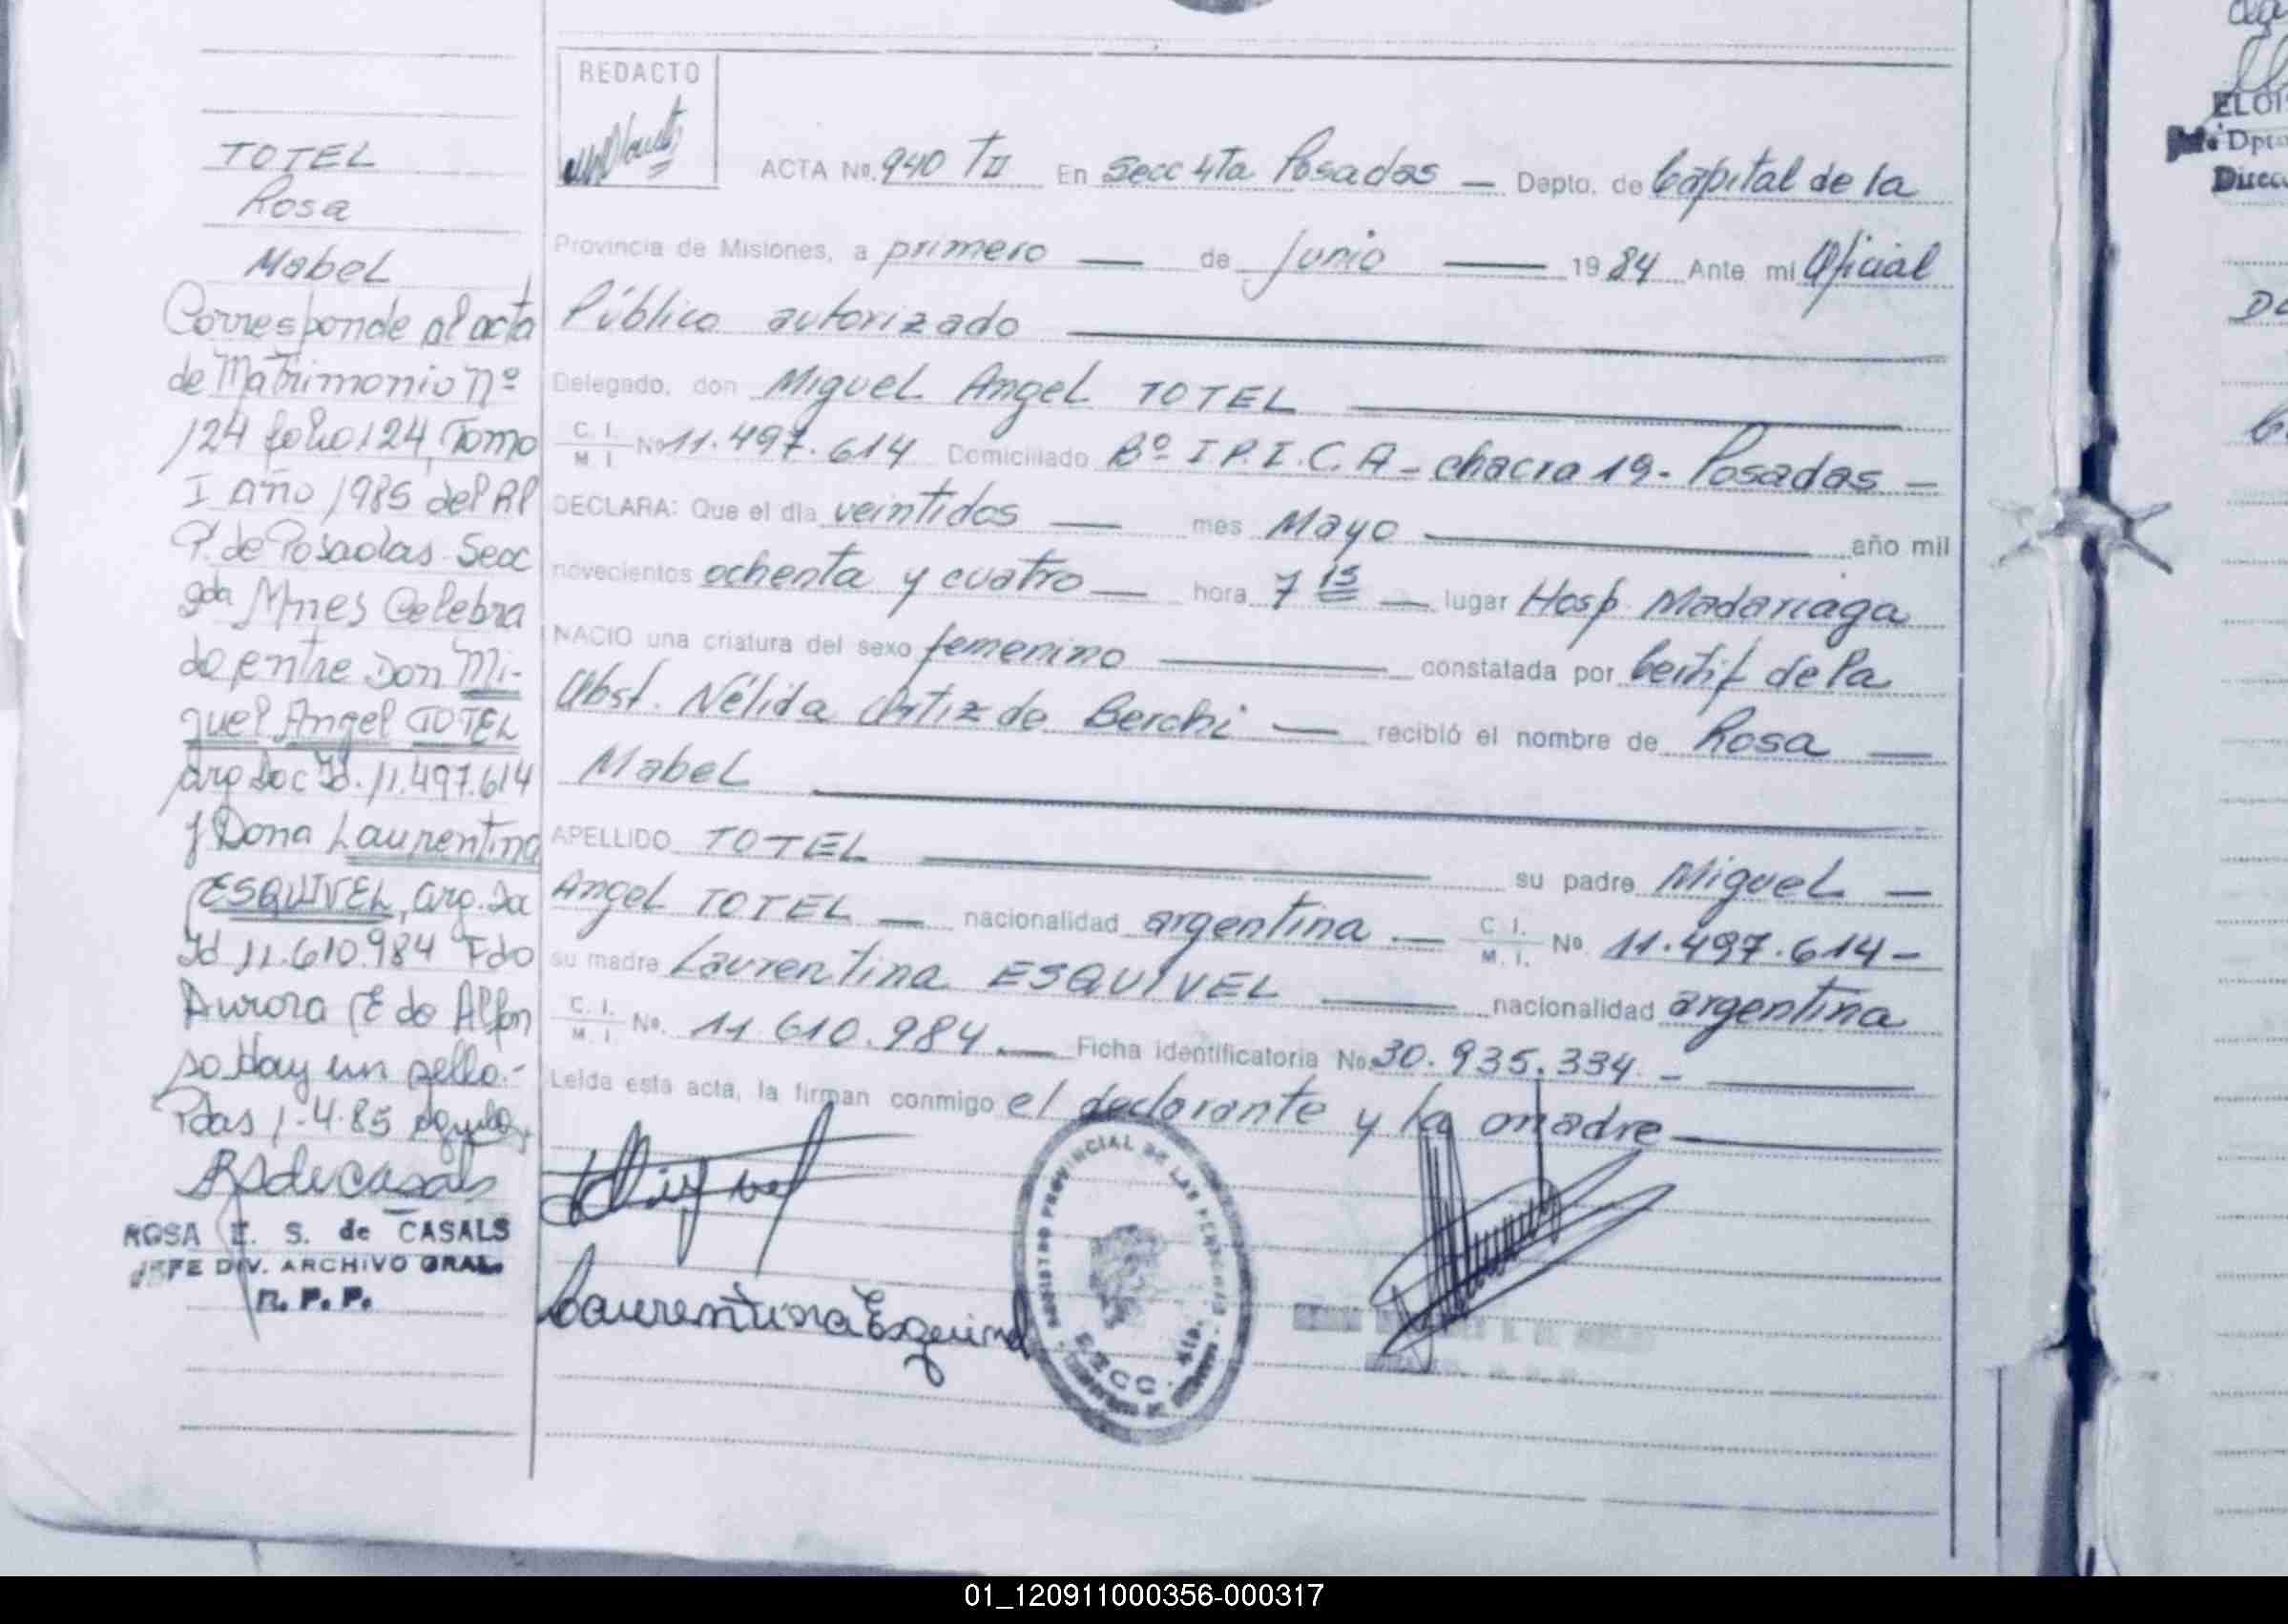 TOTEL
Rosa
Mabel
Corresponde al acta
de Matrimonio Nº
124 folio 124, Tomo
I año 1985 del RP
P. de Posadas Secc
Mnes Celebra
do entre Don Mi-
guel Angel TOTEL
arg Doc Id. 11.497.614
y Dona Laurentina
ESQUIVEL, arg. Do
Id 11.610.984 Fdo
Aurora E de Alfon
so Hay un sello.-
Pdas 1-4-85
ROSA E. S. de CASALS
JEFE DIV. ARCHIVO GRAL.
R. P. P.
REDACTO
ACTA No. 940 TII En Secc 4ta Posadas — Depto. de Capital de la
Provincia de Misiones, a primero — de junio — 1984 Ante mi Oficial
Público autorizado
Delegado, don Miguel Angel TOTEL
C. I. M. I. No 11.497.614 Domiciliado Bº I.P.I.C.A - chacra 19 - Posadas —
DECLARA: Que el dia veintidos — mes Mayo — año mil
novecientos ochenta y cuatro — hora 7 15 — lugar Hosp. Madariaga
NACIO una criatura del sexo femenino — constatada por Certif de la
Obst. Nélida Ortiz de Berchi — recibió el nombre de Rosa —
Mabel
APELLIDO TOTEL — su padre Miguel —
Angel TOTEL — nacionalidad argentina — C. I. M. I. No. 11.497.614 -
su madre Laurentina ESQUIVEL — nacionalidad argentina
C. I. M. I. No. 11.610.984. — Ficha identificatoria No. 30.935.334. -
Leida esta acta, la firman conmigo el declarante y la madre
Miguel
Laurentina Esquivel
REGISTRO PROVINCIAL DE LAS PERSONAS
SECC. 4ta.
ELOI
Dpto
Direcc
01_120911000356-000317